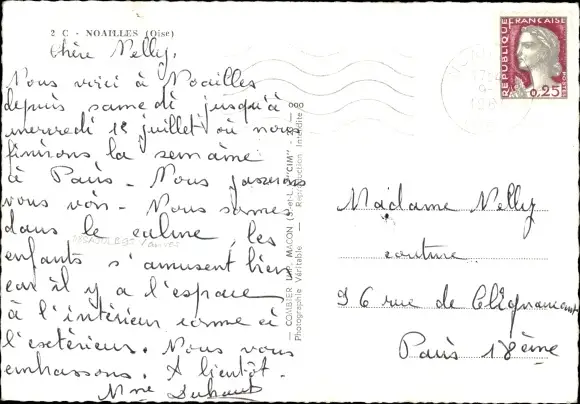 2 C - NOAILLES (Oise)
Chère Nelly,
Nous voici à Noailles
depuis samedi jusqu'à
mercredi 1e juillet où nous
finirons la semaine
à Paris - Nous passerons
vous voir - Nous sommes
dans le calme, les
enfants s'amusent bien
car il y a l'espace
à l'intérieur comme à
l'extérieur. Nous vous
embrassons. A bientôt.
Mme
COMBIER IMP. MACON (S.-et-L.) "CIM"
Photographie Véritable - Reproduction Interdite
REPUBLIQUE FRANÇAISE
0,25
Madame Nelly
couture
96 rue de Clignancourt
Paris 18ème